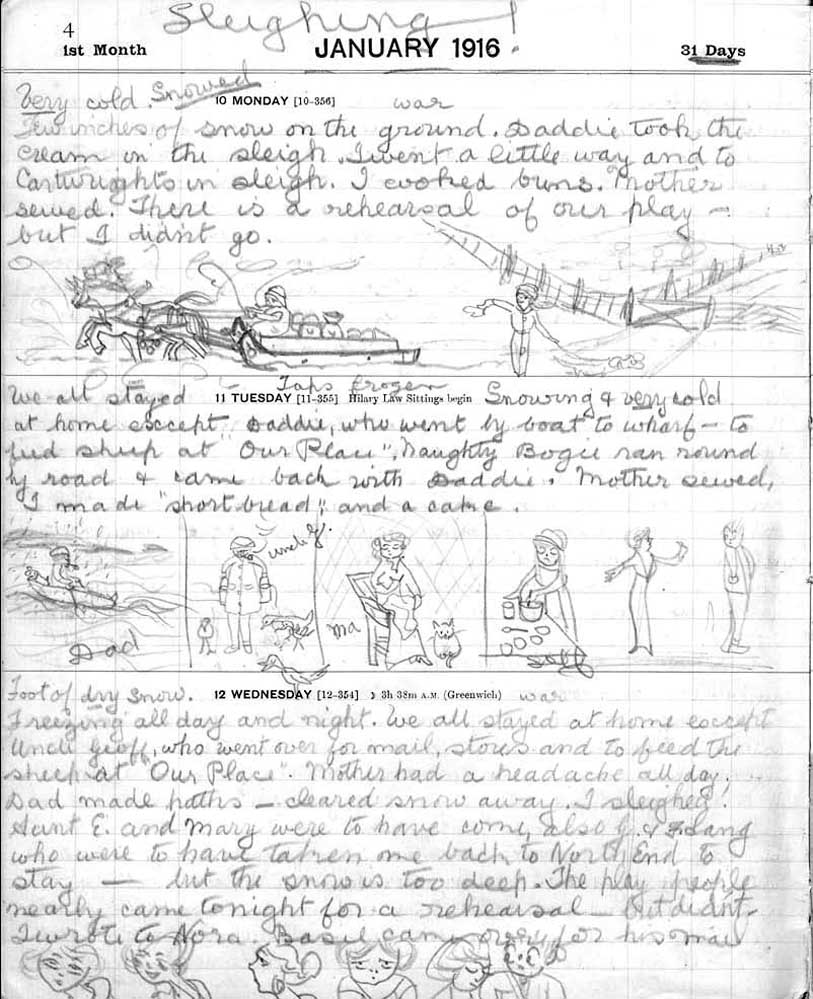 Sleighing!
4
1st Month
JANUARY 1916
31 Days
Very cold. Snowed
10 MONDAY [10-356]
war
Few inches of snow on the ground. Daddie took the
cream in the sleigh. I went a little way and to
Cartwrights in sleigh. I cooked buns. Mother
sewed. There is a rehearsal of our play —
but I didn't go.
Taps frozen
We all stayed
11 TUESDAY [11-355] Hilary Law Sittings begin
Snowing & very cold
at home except Daddie, who went by boat to wharf — to
feed sheep at "Our Place". Naughty Bogie ran round
by road & came back with Daddie. Mother sewed,
I made "short bread", and a cake.
Uncle G.
Ma
Dad
Self
Foot of dry snow.
12 WEDNESDAY [12-354] ☽ 3h 38m A.M. (Greenwich)
war
Freezing all day and night. We all stayed at home except
Uncle Geoff, who went over for mail, stores and to feed the
sheep at "Our Place". Mother had a headache all day.
Dad made paths — cleared snow away. I sleighed!
Aunt E. and Mary were to have come, also G. & F. Lang
who were to have taken me back to North End to
stay — but the snow is too deep. The play people
nearly came tonight for a rehearsal — but didn't.
I wrote to Nora. Basil came over for his mail